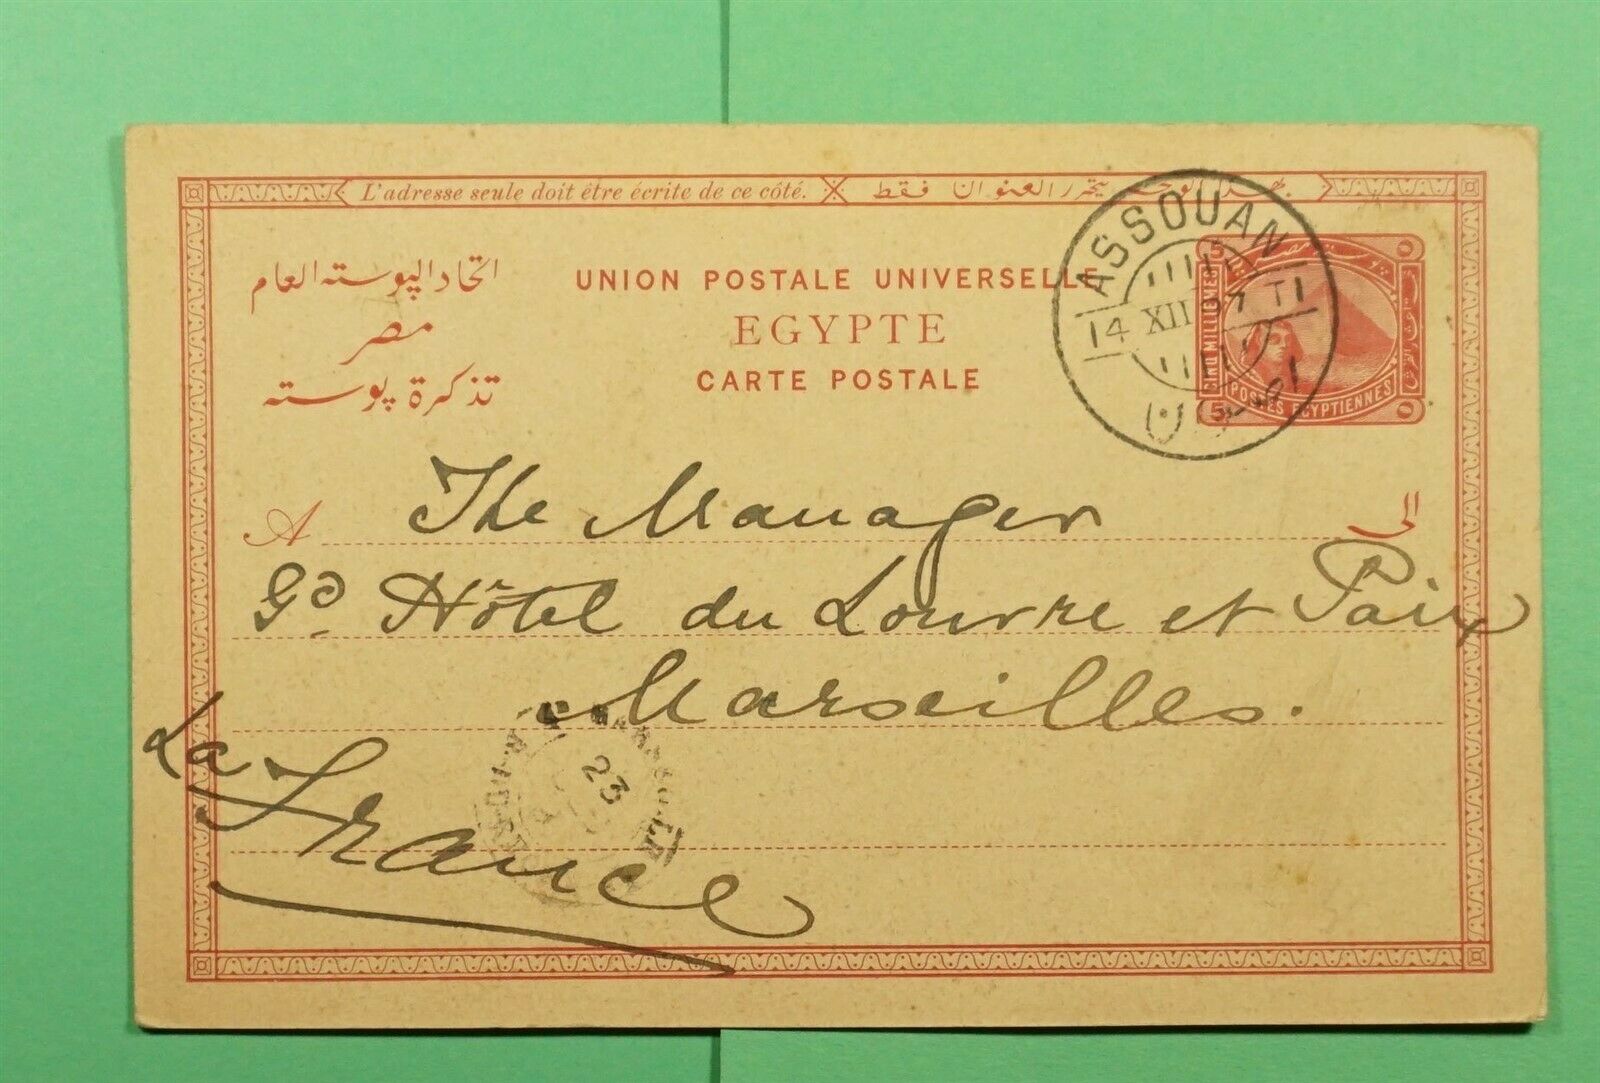 L'adresse seule doit être écrite de ce côté.
العنوان فقط
اتحاد البوسته العام
مصر
تذكرة بوسته
UNION POSTALE UNIVERSELLE
EGYPTE
CARTE POSTALE
ASSOUAN
14 XII 07 T1
CINQ MILLIEMES
5
5
POSTES EGYPTIENNES
A The Manager الى
Gd. Hôtel du Louvre et Paix
Marseilles.
La France
23